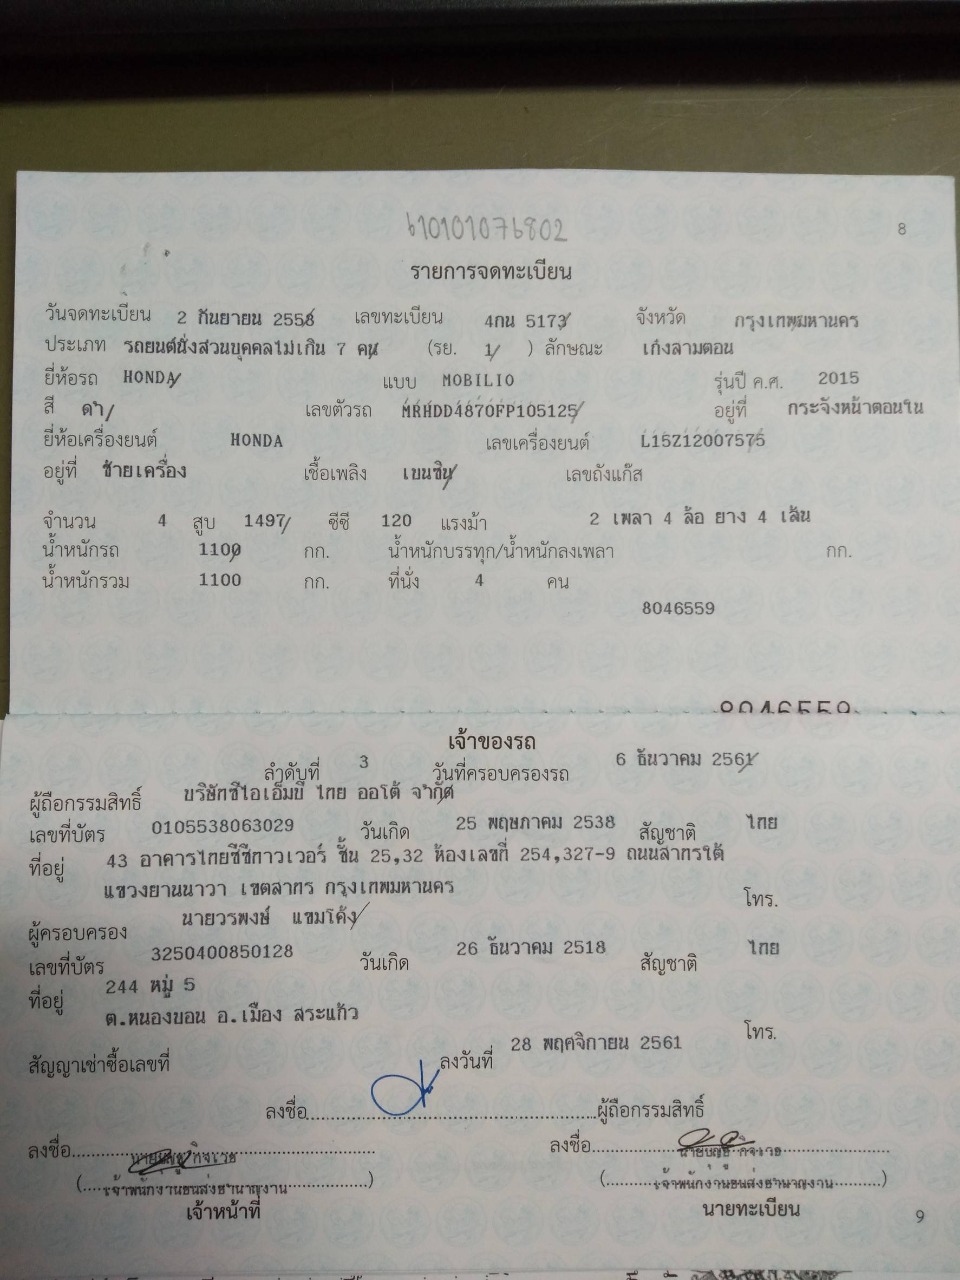 610101076802
8
รายการจดทะเบียน
วันจดทะเบียน 2 กันยายน 2558 เลขทะเบียน 4กน 5173 จังหวัด กรุงเทพมหานคร
ประเภท รถยนต์นั่งส่วนบุคคลไม่เกิน 7 คน (รย. 1 ) ลักษณะ เก๋งสามตอน
ยี่ห้อรถ HONDA แบบ MOBILIO รุ่นปี ค.ศ. 2015
สี ดำ เลขตัวรถ MRHDD4870FP105125 อยู่ที่ กระจังหน้าตอนใน
ยี่ห้อเครื่องยนต์ HONDA เลขเครื่องยนต์ L15Z12007575
อยู่ที่ ซ้ายเครื่อง เชื้อเพลิง เบนซิน เลขถังแก๊ส
จำนวน 4 สูบ 1497 ซีซี 120 แรงม้า 2 เพลา 4 ล้อ ยาง 4 เส้น
น้ำหนักรถ 1100 กก. น้ำหนักบรรทุก/น้ำหนักลงเพลา กก.
น้ำหนักรวม 1100 กก. ที่นั่ง 4 คน
8046559
8046559
เจ้าของรถ
ลำดับที่ 3 วันที่ครอบครองรถ 6 ธันวาคม 2561
ผู้ถือกรรมสิทธิ์ บริษัทซีไอเอ็มบี ไทย ออโต้ จำกัด
เลขที่บัตร 0105538063029 วันเกิด 25 พฤษภาคม 2538 สัญชาติ ไทย
ที่อยู่ 43 อาคารไทยซีซีทาวเวอร์ ชั้น 25,32 ห้องเลขที่ 254,327-9 ถนนสาทรใต้
แขวงยานนาวา เขตสาทร กรุงเทพมหานคร โทร.
ผู้ครอบครอง นายวรพงษ์ แซมโค้ง
เลขที่บัตร 3250400850128 วันเกิด 26 ธันวาคม 2518 สัญชาติ ไทย
ที่อยู่ 244 หมู่ 5
ต.หนองบอน อ.เมือง สระแก้ว โทร.
สัญญาเช่าซื้อเลขที่ ลงวันที่ 28 พฤศจิกายน 2561
ลงชื่อ ผู้ถือกรรมสิทธิ์
ลงชื่อ ลงชื่อ
(เจ้าพนักงานขนส่งชำนาญงาน) (เจ้าพนักงานขนส่งชำนาญงาน)
เจ้าหน้าที่ นายทะเบียน
9